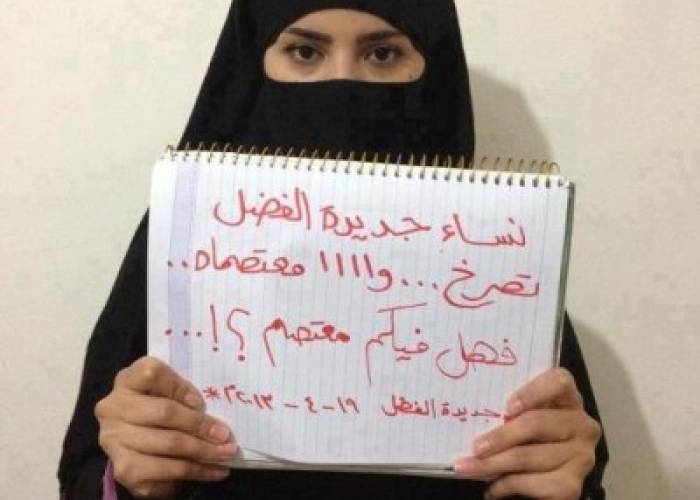 نساء جديدة الفضل
تصرخ... وا١١١ معتصماه..
فهل فيكم معتصم ؟!...
جديدة الفضل ١٩-٤-٢٠١٣*